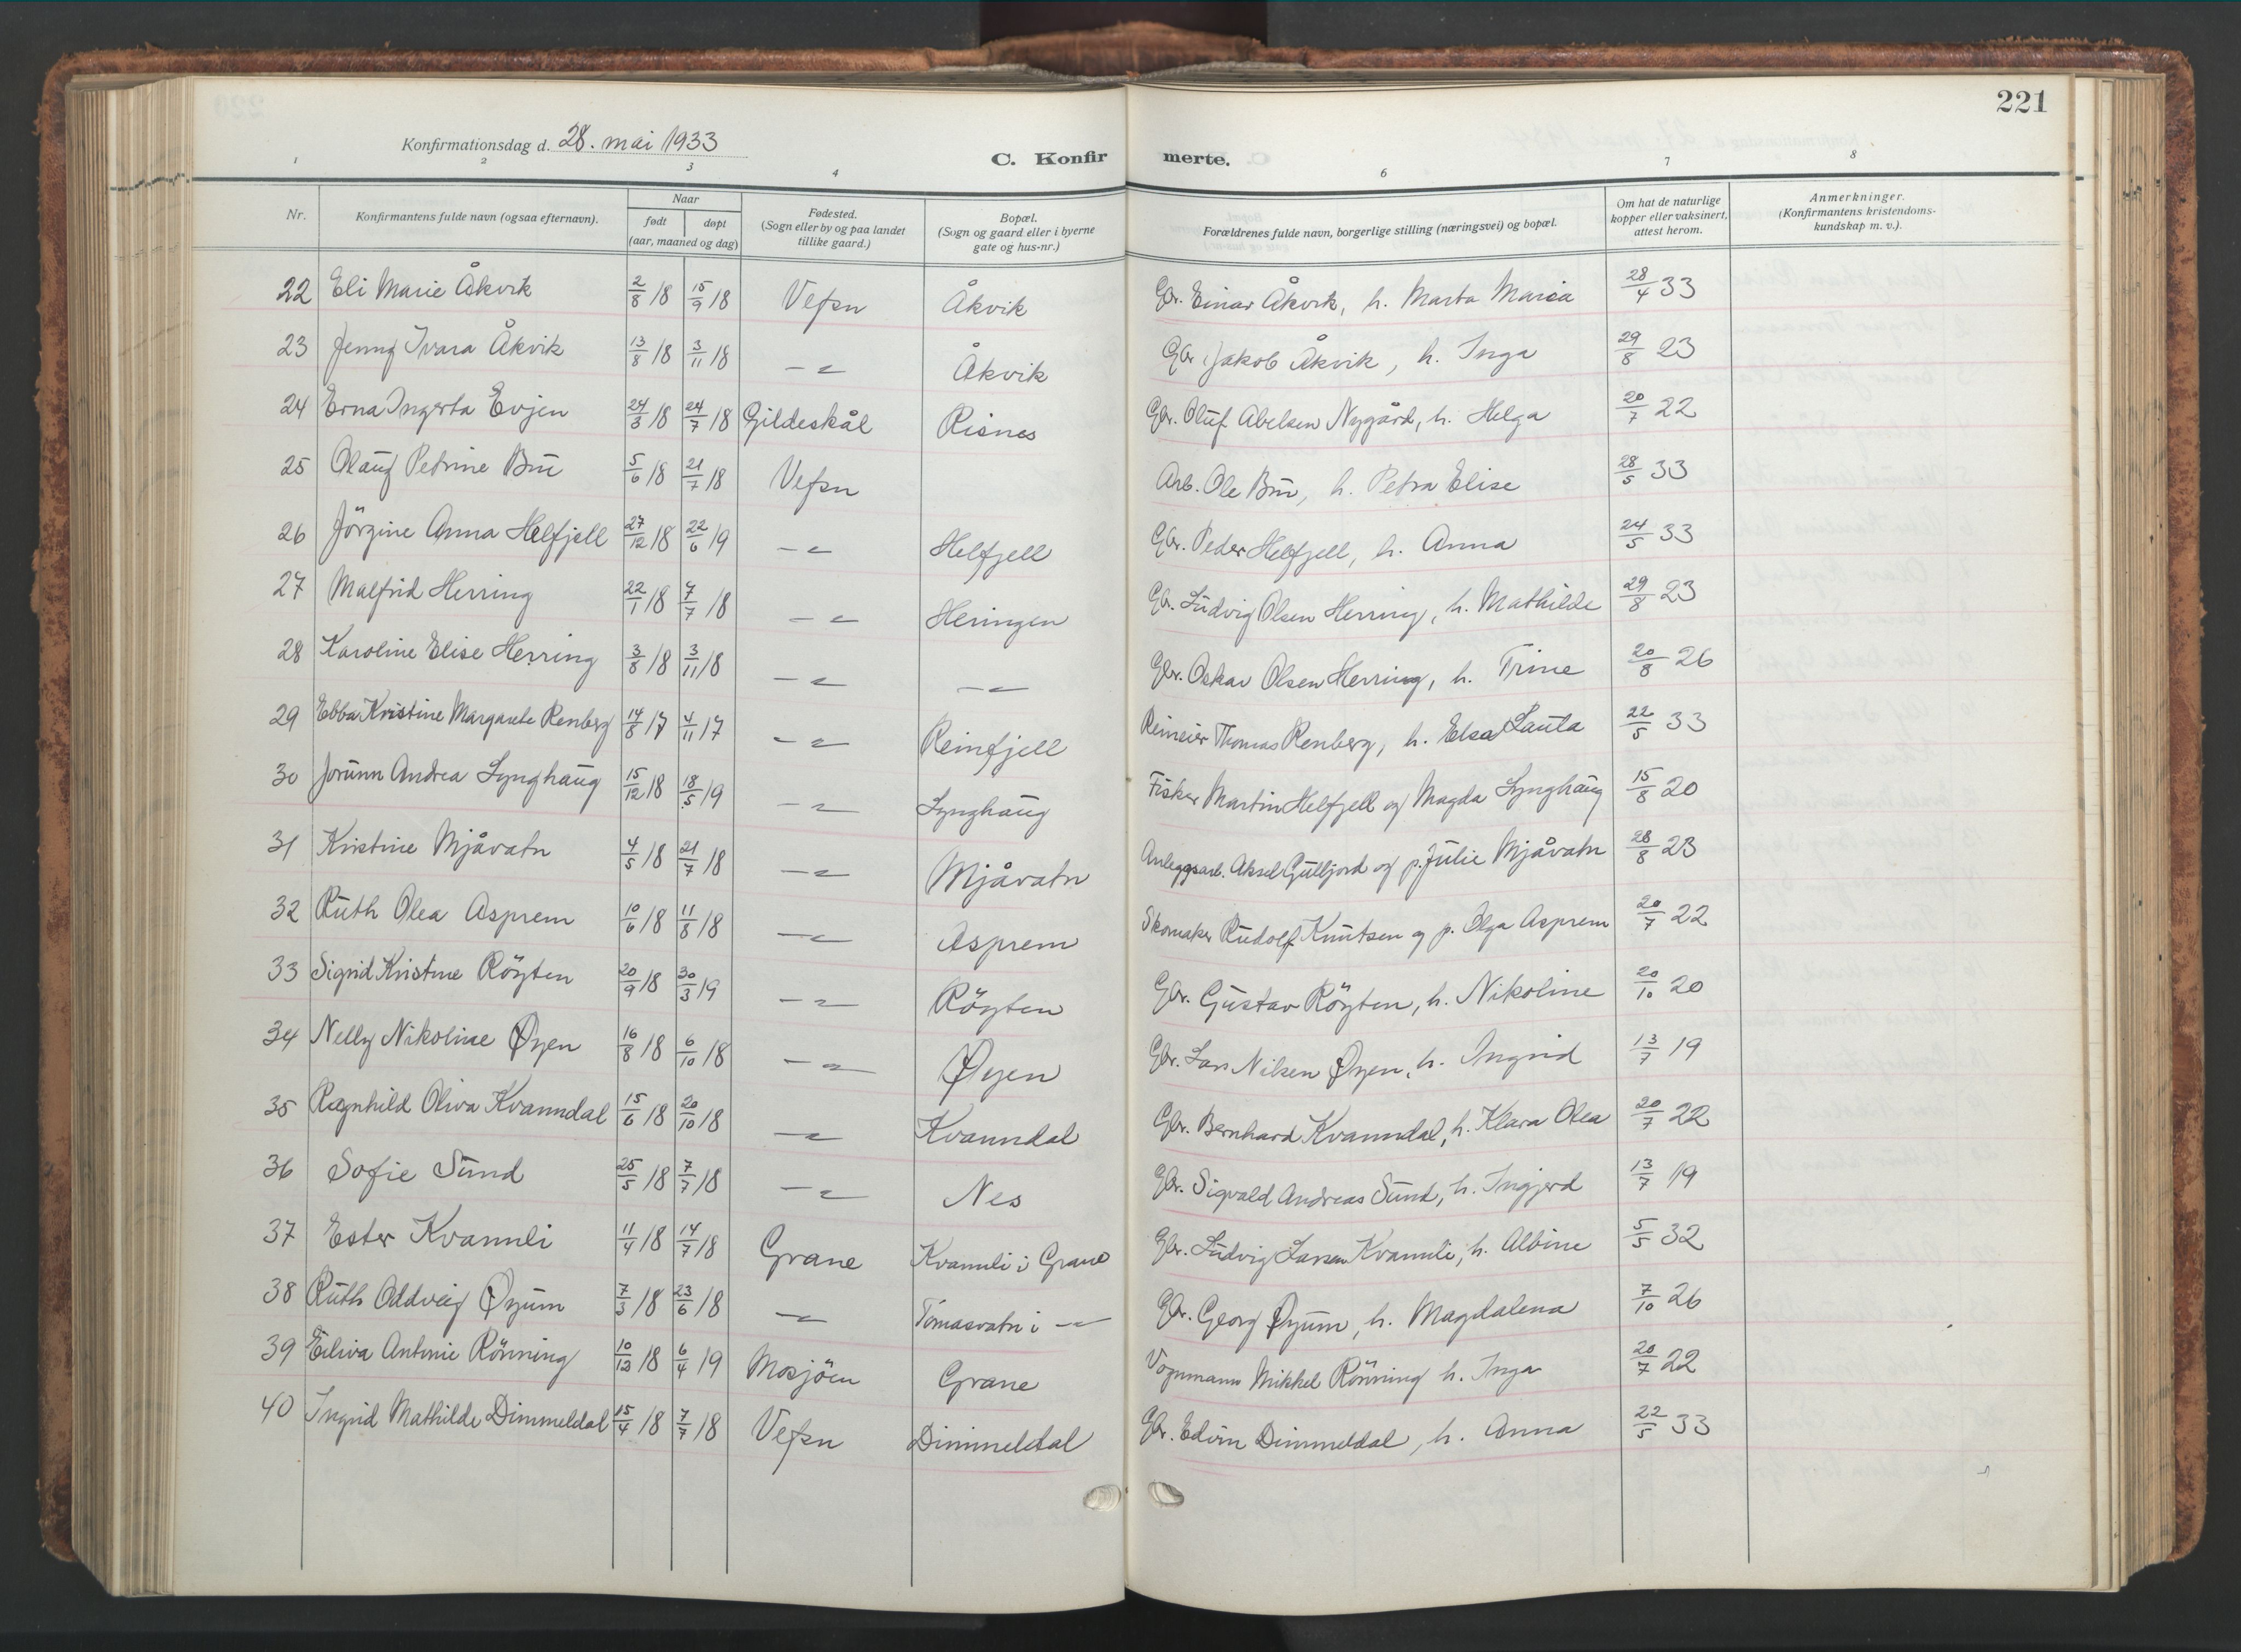 221
Konfirmationsdag d. 28. mai 1933
C. Konfirmerte.
1 2 3 4 6 7 8
Nr. | Konfirmantens fulde navn (ogsaa efternavn). | Naar født | døpt (aar, maaned og dag) | Fødested. (Sogn eller by og paa landet tillike gaard.) | Bopæl. (Sogn og gaard eller i byerne gate og hus-nr.) | Forældrenes fulde navn, borgerlige stilling (næringsvei) og bopæl. | Om hat de naturlige kopper eller vaksinert, attest herom. | Anmerkninger. (Konfirmantens kristendoms-kundskap m. v.).
22 Eli Marie Åkvik 2/8 18 15/9 18 Vefsn Åkvik Gbr. Einar Åkvik, h. Marta Maria 28/4 33
23 Jenny Ivara Åkvik 13/8 18 3/11 18 -"- Åkvik Gbr. Jakob Åkvik, h. Inga 29/8 23
24 Erna Ingerta Evjen 24/3 18 24/7 18 Gildeskål Risnes Gbr. Oluf Abelsen Nygård, h. Helga 20/7 22
25 Olaug Petrine Bru 5/6 18 21/7 18 Vefsn Arb. Ole Bru, h. Petra Elise 28/5 33
26 Jörgine Anna Helfjell 27/12 18 22/6 19 -"- Helfjell Gbr. Peder Helfjell, h. Anna 24/5 33
27 Malfrid Herring 22/1 18 7/7 18 -"- Heringen Gbr. Ludvig Olsen Herring, h. Mathilde 29/8 23
28 Karoline Elise Herring 3/8 18 3/11 18 -"- -"- Gbr. Oskar Olsen Herring, h. Trine 20/8 26
29 Ebba Kristine Margarete Renberg 14/8 17 4/11 17 -"- Reinfjell Reineier Thomas Renberg, h. Elsa Lauta 22/5 33
30 Jorunn Andrea Lynghaug 15/12 18 18/5 19 -"- Lynghaug Fisker Martin Helfjell og Magda Lynghaug 15/8 20
31 Kristine Mjåvatn 4/5 18 21/7 18 -"- Mjåvatn Anleggsarb. Aksel Gulljord og p. Julie Mjåvatn 28/8 23
32 Ruth Olea Asprem 10/6 18 11/8 18 -"- Asprem Skomaker Rudolf Knutsen og p. Olga Asprem 20/7 22
33 Sigrid Kristine Röyten 20/9 18 30/3 19 -"- Röyten Gbr. Gustav Röyten, h. Nikoline 20/10 20
34 Nelly Nikoline Øyen 16/8 18 6/10 18 -"- Øyen Gbr. Lars Nilsen Øyen, h. Ingrid 13/7 19
35 Ragnhild Oliva Kvanndal 15/6 18 20/10 18 -"- Kvanndal Gbr. Bernhard Kvanndal, h. Klara Olea 20/7 22
36 Sofie Sund 25/5 18 7/7 18 -"- Nes Gbr. Sigvald Andreas Sund, h. Ingjerd 13/7 19
37 Ester Kvannli 11/4 18 14/7 18 Grane Kvannli i Grane Gbr. Ludvig Larsen Kvannli, h. Albine 5/5 32
38 Ruth Oddveig Øyum 7/3 18 23/6 18 -"- Tomasvatn i -"- Gbr. Georg Øyum, h. Magdalena 7/10 26
39 Eiliva Antonie Rönning 10/12 18 6/4 19 Mosjöen Grane Vognmann Mikkel Rönning h. Inga 20/7 22
40 Ingrid Mathilde Dimmeldal 15/4 18 7/7 18 Vefsn Dimmeldal Gbr. Edvin Dimmeldal, h. Anna 22/5 33